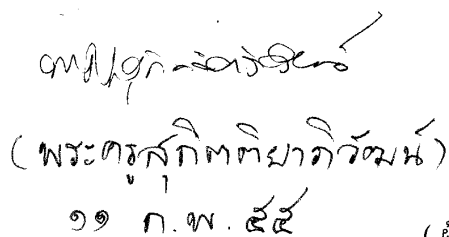 (พระครูสุกิตติยาภิวัฒน์)
๑๑ ก.พ. ๕๕